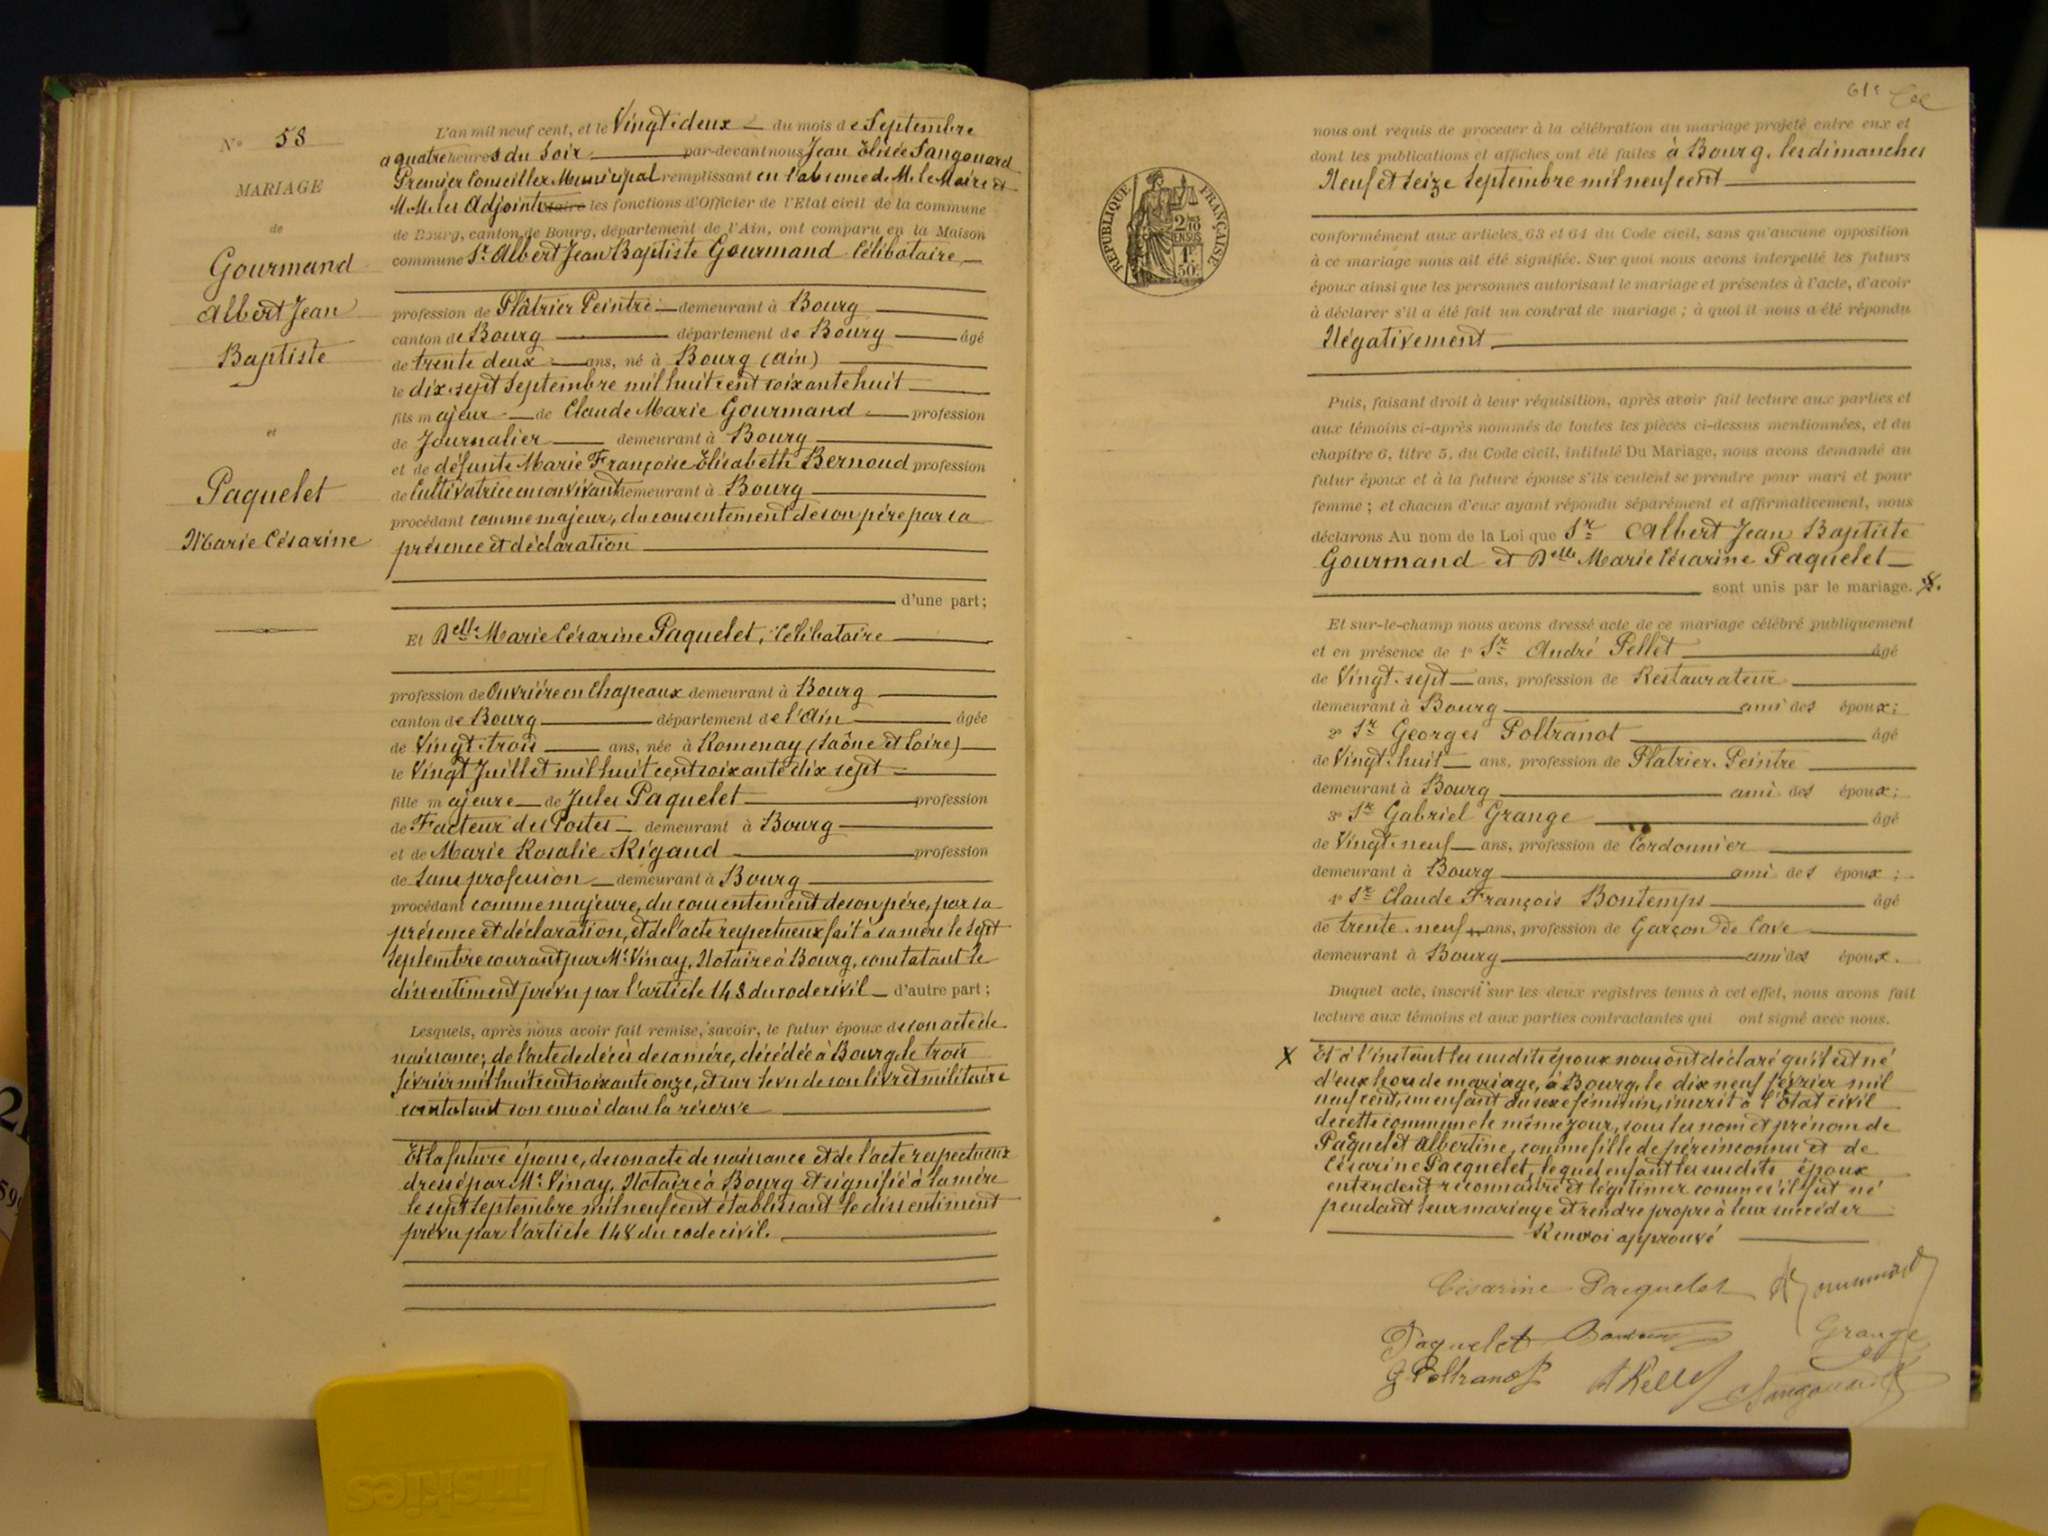 N° 58
MARIAGE
de
Gourmand
Albert Jean
Baptiste
et
Paquelet
Marie Césarine
L'an mil neuf cent, et le Vingt-deux du mois de Septembre
à quatre heures du Soir par-devant nous Jean Elisée Sangouard
Premier Conseiller Municipal remplissant en l'absence de M. le Maire et
M.M. les Adjoints les fonctions d'Officier de l'Etat civil de la commune
de Bourg, canton de Bourg, département de l'Ain, ont comparu en la Maison
commune Sr Albert Jean Baptiste Gourmand Célibataire
profession de Plâtrier Peintre demeurant à Bourg
canton de Bourg département de Bourg âgé
de trente deux ans, né à Bourg (Ain)
le dix-sept Septembre mil huit cent soixante huit
fils majeur de Claude Marie Gourmand profession
de Journalier demeurant à Bourg
et de défunte Marie Françoise Elisabeth Bernoud profession
de Cultivatrice en son vivant demeurant à Bourg
procédant comme majeur, du consentement de son père par sa
présence et déclaration
d'une part;
Et Delle Marie Césarine Paquelet, Célibataire
profession de Ouvrière en Chapeaux demeurant à Bourg
canton de Bourg département de l'Ain âgée
de Vingt-trois ans, née à Romenay (Saône et Loire)
le Vingt Juillet mil huit cent soixante dix sept
fille majeure de Jules Paquelet profession
de Facteur des Postes demeurant à Bourg
et de Marie Rosalie Rigaud profession
de Sans profession demeurant à Bourg
procédant comme majeure, du consentement de son père, par sa
présence et déclaration, et de l'acte respectueux fait à sa mère le sept
Septembre courant par Me Vinay, Notaire à Bourg, constatant le
dissentiment prévu par l'article 148 du code civil d'autre part;
Lesquels, après nous avoir fait remise, savoir, le futur époux de son acte de
naissance; de l'acte de décès de sa mère, décédée à Bourg, le trois
février mil huit cent soixante onze, et sur le vu de son livret militaire
constatant son envoi dans la réserve
Et la future épouse, de son acte de naissance et de l'acte respectueux
dressé par Me Vinay, Notaire à Bourg et signifié à la mère
le sept Septembre mil neuf cent établissant le dissentiment
prévu par l'article 148 du code civil.
61e
RÉPUBLIQUE FRANÇAISE
2/10
EN SUS
1F
50c
nous ont requis de procéder à la célébration du mariage projeté entre eux et
dont les publications et affiches ont été faites à Bourg, les dimanches
Neuf et Seize Septembre mil neuf cent
conformément aux articles 63 et 64 du Code civil, sans qu'aucune opposition
à ce mariage nous ait été signifiée. Sur quoi nous avons interpellé les futurs
époux ainsi que les personnes autorisant le mariage et présentes à l'acte, d'avoir
à déclarer s'il a été fait un contrat de mariage; à quoi il nous a été répondu
Négativement
Puis, faisant droit à leur réquisition, après avoir fait lecture aux parties et
aux témoins ci-après nommés de toutes les pièces ci-dessus mentionnées, et du
chapitre 6, titre 5, du Code civil, intitulé Du Mariage, nous avons demandé au
futur époux et à la future épouse s'ils veulent se prendre pour mari et pour
femme; et chacun d'eux ayant répondu séparément et affirmativement, nous
déclarons Au nom de la Loi que Sr Albert Jean Baptiste
Gourmand et Delle Marie Césarine Paquelet
sont unis par le mariage. X.
Et sur-le-champ nous avons dressé acte de ce mariage célébré publiquement
et en présence de 1° Sr André Pellet âgé
de Vingt-sept ans, profession de Restaurateur
demeurant à Bourg ami des époux;
2° Sr Georges Poltranot âgé
de Vingt-huit ans, profession de Plâtrier-Peintre
demeurant à Bourg ami des époux;
3° Sr Gabriel Grange âgé
de Vingt-neuf ans, profession de Cordonnier
demeurant à Bourg ami des époux;
4° Sr Claude François Bontemps âgé
de trente-neuf ans, profession de Garçon de Cave
demeurant à Bourg ami des époux.
Duquel acte, inscrit sur les deux registres tenus à cet effet, nous avons fait
lecture aux témoins et aux parties contractantes qui ont signé avec nous.
X Et à l'instant les susdits époux nous ont déclaré qu'il est né
d'eux hors de mariage, à Bourg, le dix neuf février mil
neuf cent, un enfant du sexe féminin, inscrit à l'Etat civil
de cette commune le même jour, sous les nom et prénom de
Paquelet Albertine, comme fille de père inconnu et de
Césarine Pacquelet, lequel enfant les susdits époux
entendent reconnaître et légitimer comme s'il fut né
pendant leur mariage et rendre propre à leur succéder
Renvoi approuvé
Césarine Pacquelet A Gourmand
Paquelet Grange
G Poltranot A Pellet Sangouard
Friskies